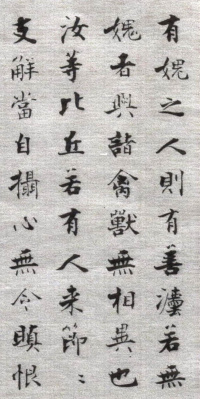 有媿之人則有善灋若無
媿者與諸禽獸無相異也
汝等比丘若有人来節〻
支解當自攝心無令瞋恨